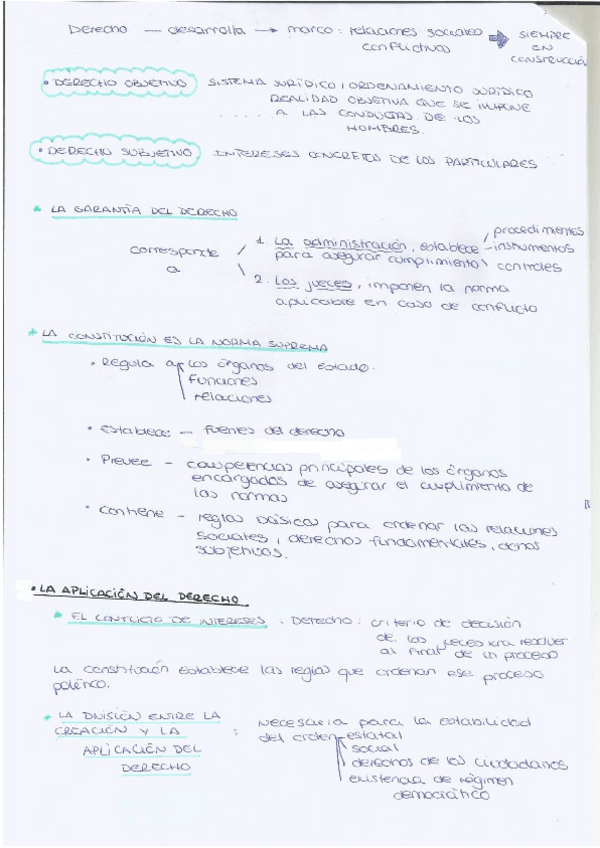 Derecho — desarrolla → marco: relaciones sociales conflictivas → SIEMPRE EN CONSTRUCCIÓN
• DERECHO OBJETIVO SISTEMA JURÍDICO / ORDENAMIENTO JURÍDICO
REALIDAD OBJETIVA QUE SE IMPONE
..... A LAS CONDUCTAS DE LOS
HOMBRES.
• DERECHO SUBJETIVO INTERESES CONCRETOS DE LOS PARTICULARES
LA GARANTÍA DEL DERECHO
corresponde a
1. La administración, establece
para asegurar cumplimiento
procedimientos
instrumentos
controles
2. Los jueces, imponen la norma
aplicable en caso de conflicto
LA CONSTITUCIÓN ES LA NORMA SUPREMA
• Regula a los órganos del estado.
funciones
relaciones
• Establece — fuentes del derecho
• Prevee — competencias principales de los órganos
encargados de asegurar el cumplimiento de
las normas
• Contiene — reglas básicas para ordenar las relaciones
sociales, derechos fundamentales,
subjetivos.
• LA APLICACIÓN DEL DERECHO
EL CONFLICTO DE INTERESES : Derecho: criterio de decisión
de los jueces para resolver
al final de un proceso
La constitución establece las reglas que ordenan ese proceso
polémico.
LA DIVISIÓN ENTRE LA
CREACIÓN Y LA
APLICACIÓN DEL
DERECHO
: Necesaria para la estabilidad
del orden estatal
social
derechos de los ciudadanos
existencia de régimen
democrático